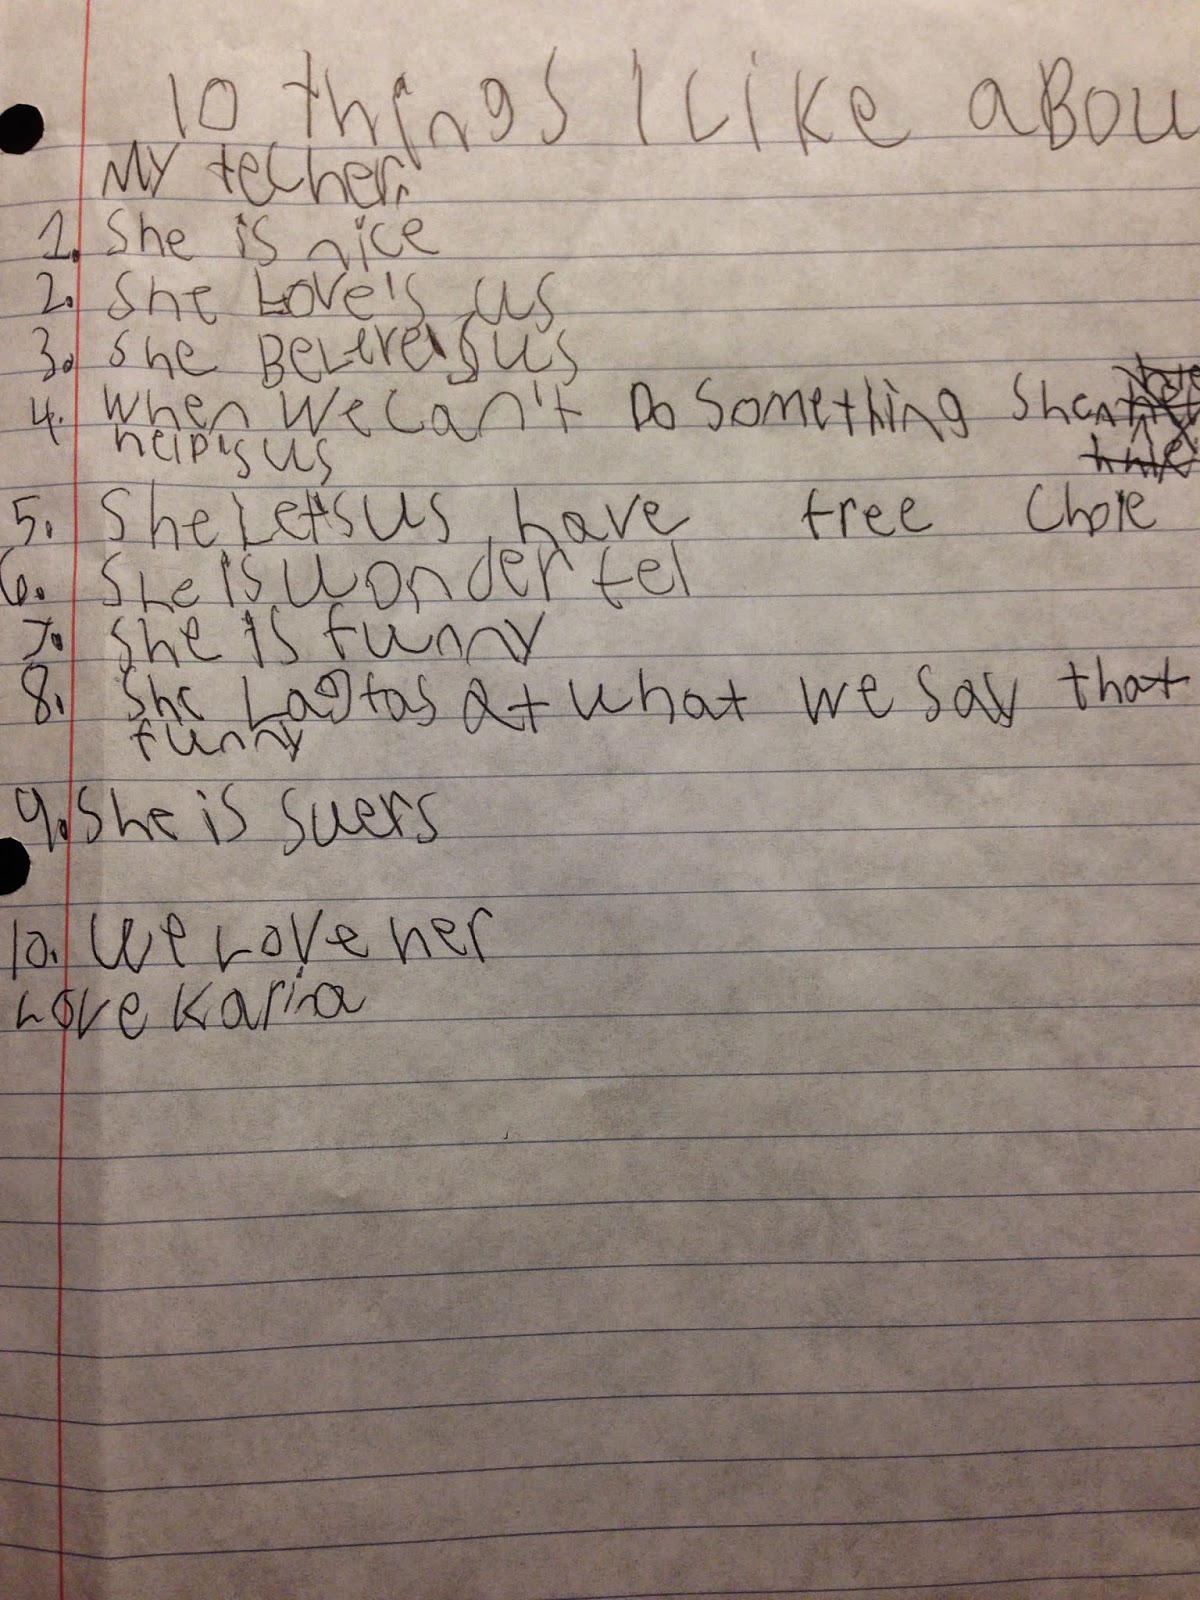 10 things I Like aBou
My techer.
1. She is nice
2. She Love's us
3. She BeLeve's us
4. When we can't Do something She
help's us
5. She Let's us have free Choie
6. She is wonderfel
7. She is funny
8. She Lagfas at what we say that
funny
9. She is suers
10. We Love her
Love Karina